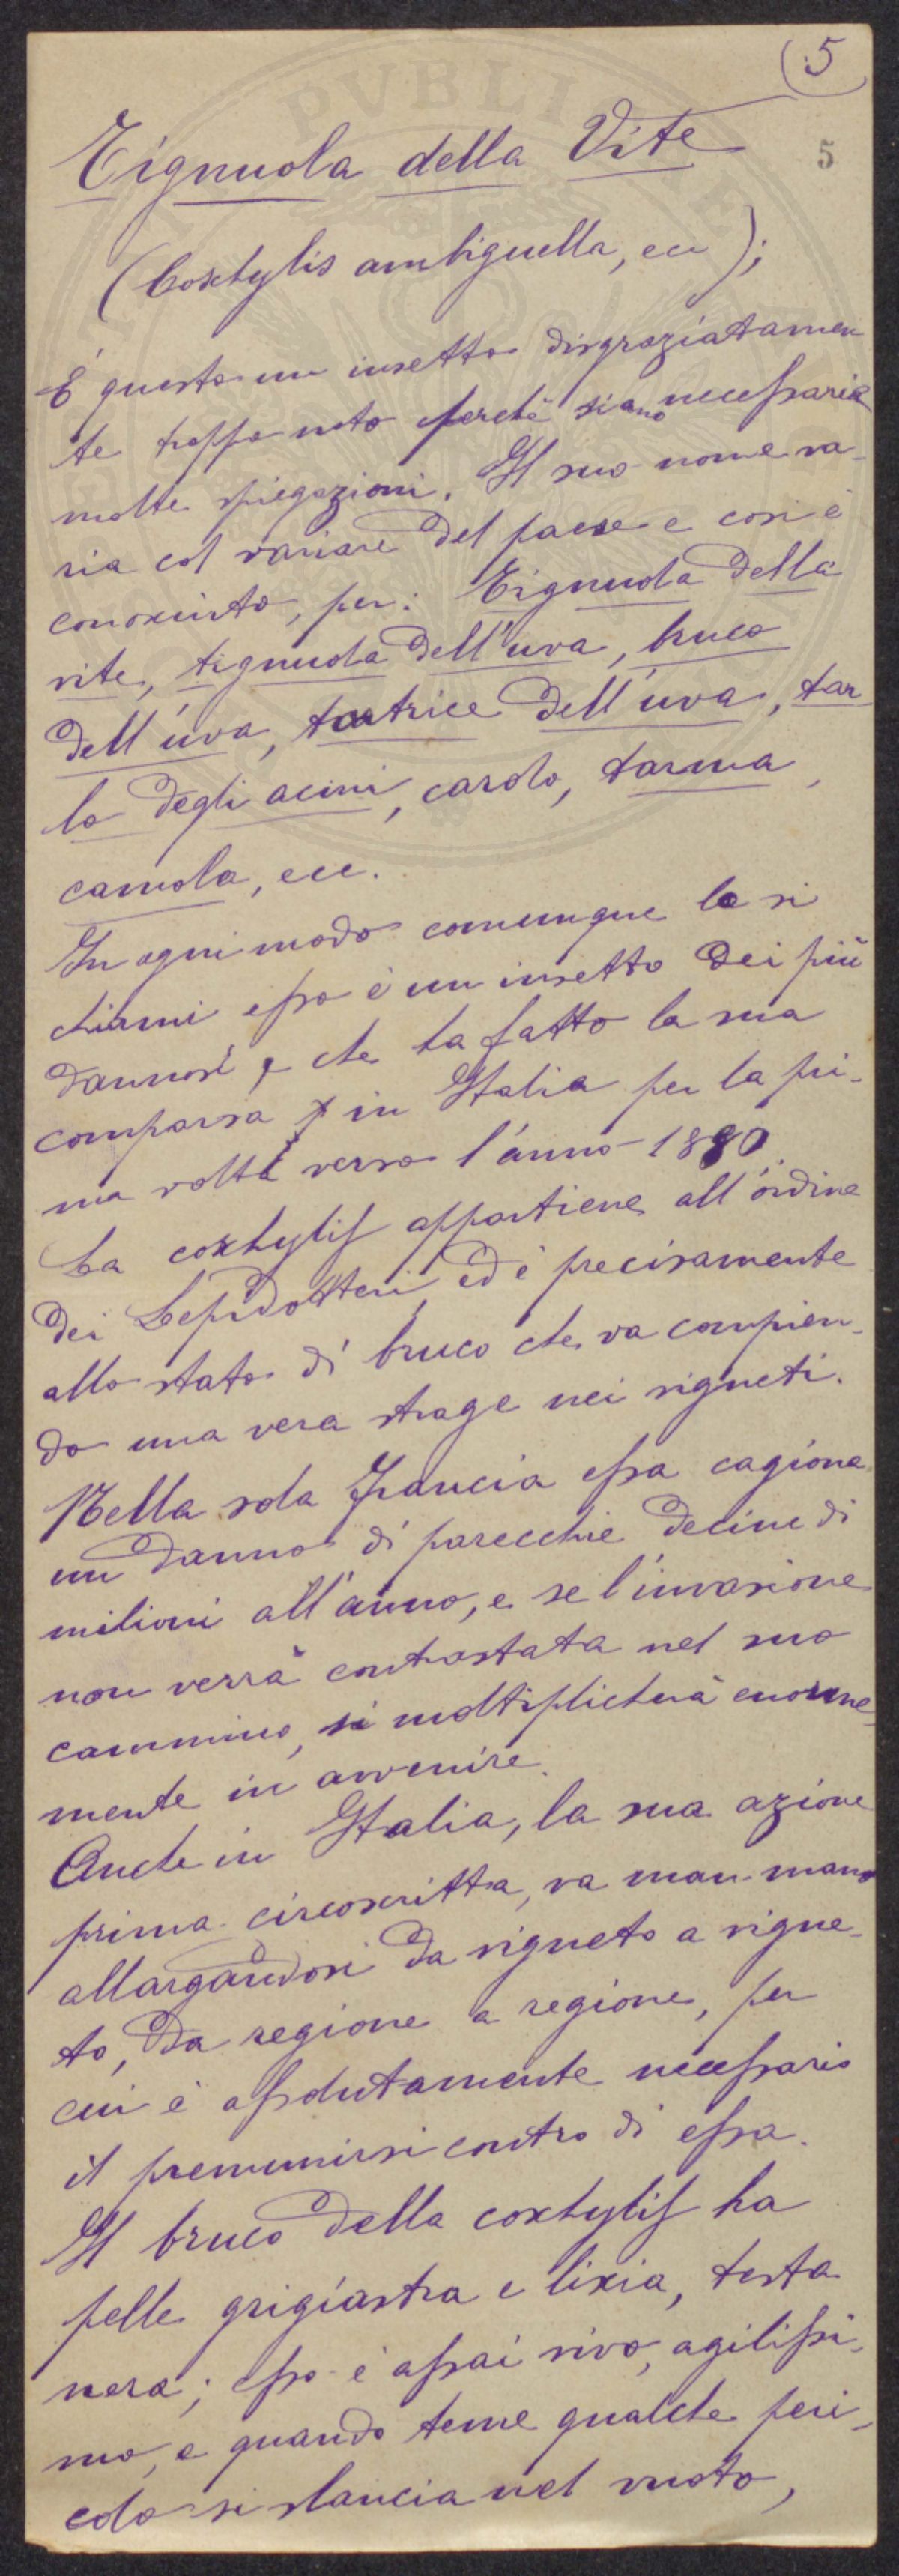 (5
5
Tignuola della Vite
(Coxhylis ambiguella, ecc);
È questo un insetto disgraziatamen
te troppo noto perchè siano necessarie
molte spiegazioni. Il suo nome va-
ria col variare del paese e così è
conosciuto, per: Tignuola della
vite, tignuola dell'uva, bruco
dell'uva, tortrice dell'uva, tar
lo degli acini, carolo, tarma,
camola, ecc.
In ogni modo comunque lo si
chiami esso è un insetto dei più
dannosi, e che ha fatto la sua
comparsa in Italia per la pri-
ma volta verso l'anno 1880.
La coxhylis appartiene all'ordine
dei Lepidotteri, ed è precisamente
allo stato di bruco che va compien-
do una vera strage nei vigneti.
Nella sola Francia essa cagiona
un danno di parecchie decine di
milioni all'anno, e se l'invasione
non verrà contrastata nel suo
cammino, si moltiplicherà enorme-
mente in avvenire.
Anche in Italia, la sua azione
prima circoscritta, va man mano
allargandosi da vigneto a vigne-
to, da regione a regione, per
cui è assolutamente necessario
il premunirsi contro di essa.
Il bruco della coxhylis ha
pelle grigiastra e liscia, testa
nera; esso è assai vivo, agilissi-
mo, e quando teme qualche peri-
colo si slancia nel vuoto,